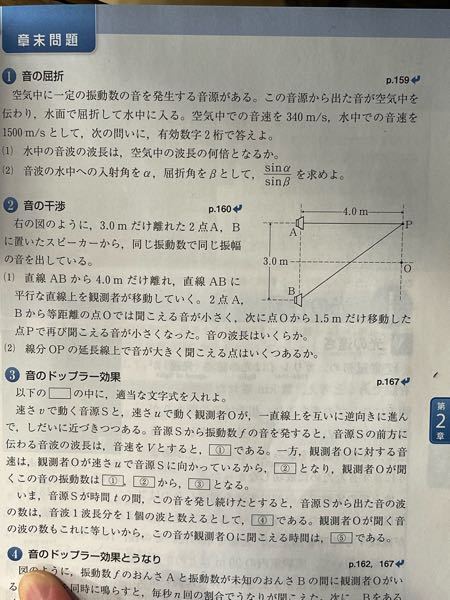 章末問題
1 音の屈折 p.159
空気中に一定の振動数の音を発生する音源がある。この音源から出た音が空気中を
伝わり，水面で屈折して水中に入る。空気中での音速を 340 m/s，水中での音速を
1500 m/s として，次の問いに，有効数字2桁で答えよ。
(1) 水中の音波の波長は，空気中の波長の何倍となるか。
(2) 音波の水中への入射角をα，屈折角をβとして，sinα/sinβ を求めよ。
2 音の干渉 p.160
右の図のように，3.0 m だけ離れた2点 A，B
に置いたスピーカーから，同じ振動数で同じ振幅
の音を出している。
(1) 直線 AB から 4.0 m だけ離れ，直線 AB に
平行な直線上を観測者が移動していく。2点 A，
B から等距離の点 O では聞こえる音が小さく，次に点 O から 1.5 m だけ移動した
点 P で再び聞こえる音が小さくなった。音の波長はいくらか。
(2) 線分 OP の延長線上で音が大きく聞こえる点はいくつあるか。
4.0 m
A
P
3.0 m
O
B
3 音のドップラー効果 p.167
以下の□の中に，適当な文字式を入れよ。
速さ v で動く音源 S と，速さ u で動く観測者 O が，一直線上を互いに逆向きに進ん
で，しだいに近づきつつある。音源 S から振動数 f の音を発すると，音源 S の前方に
伝わる音波の波長は，音速を V とすると，① である。一方，観測者 O に対する音
速は，観測者 O が速さ u で音源 S に向かっているから，② となり，観測者 O が聞
くこの音の振動数は ①，② から，③ となる。
いま，音源 S が時間 t の間，この音を発し続けたとすると，音源 S から出た音の波
の数は，音波1波長分を1個の波と数えるとして，④ である。観測者 O が聞く音
の波の数もこれに等しいから，この音が観測者 O に聞こえる時間は，⑤ である。
第2章
4 音のドップラー効果とうなり p.162, 167
図のように，振動数 f のおんさ A と振動数が未知のおんさ B の間に観測者が
同時に鳴らすと，毎秒 n 回の割合でうなりが聞こえた。次に，B をある